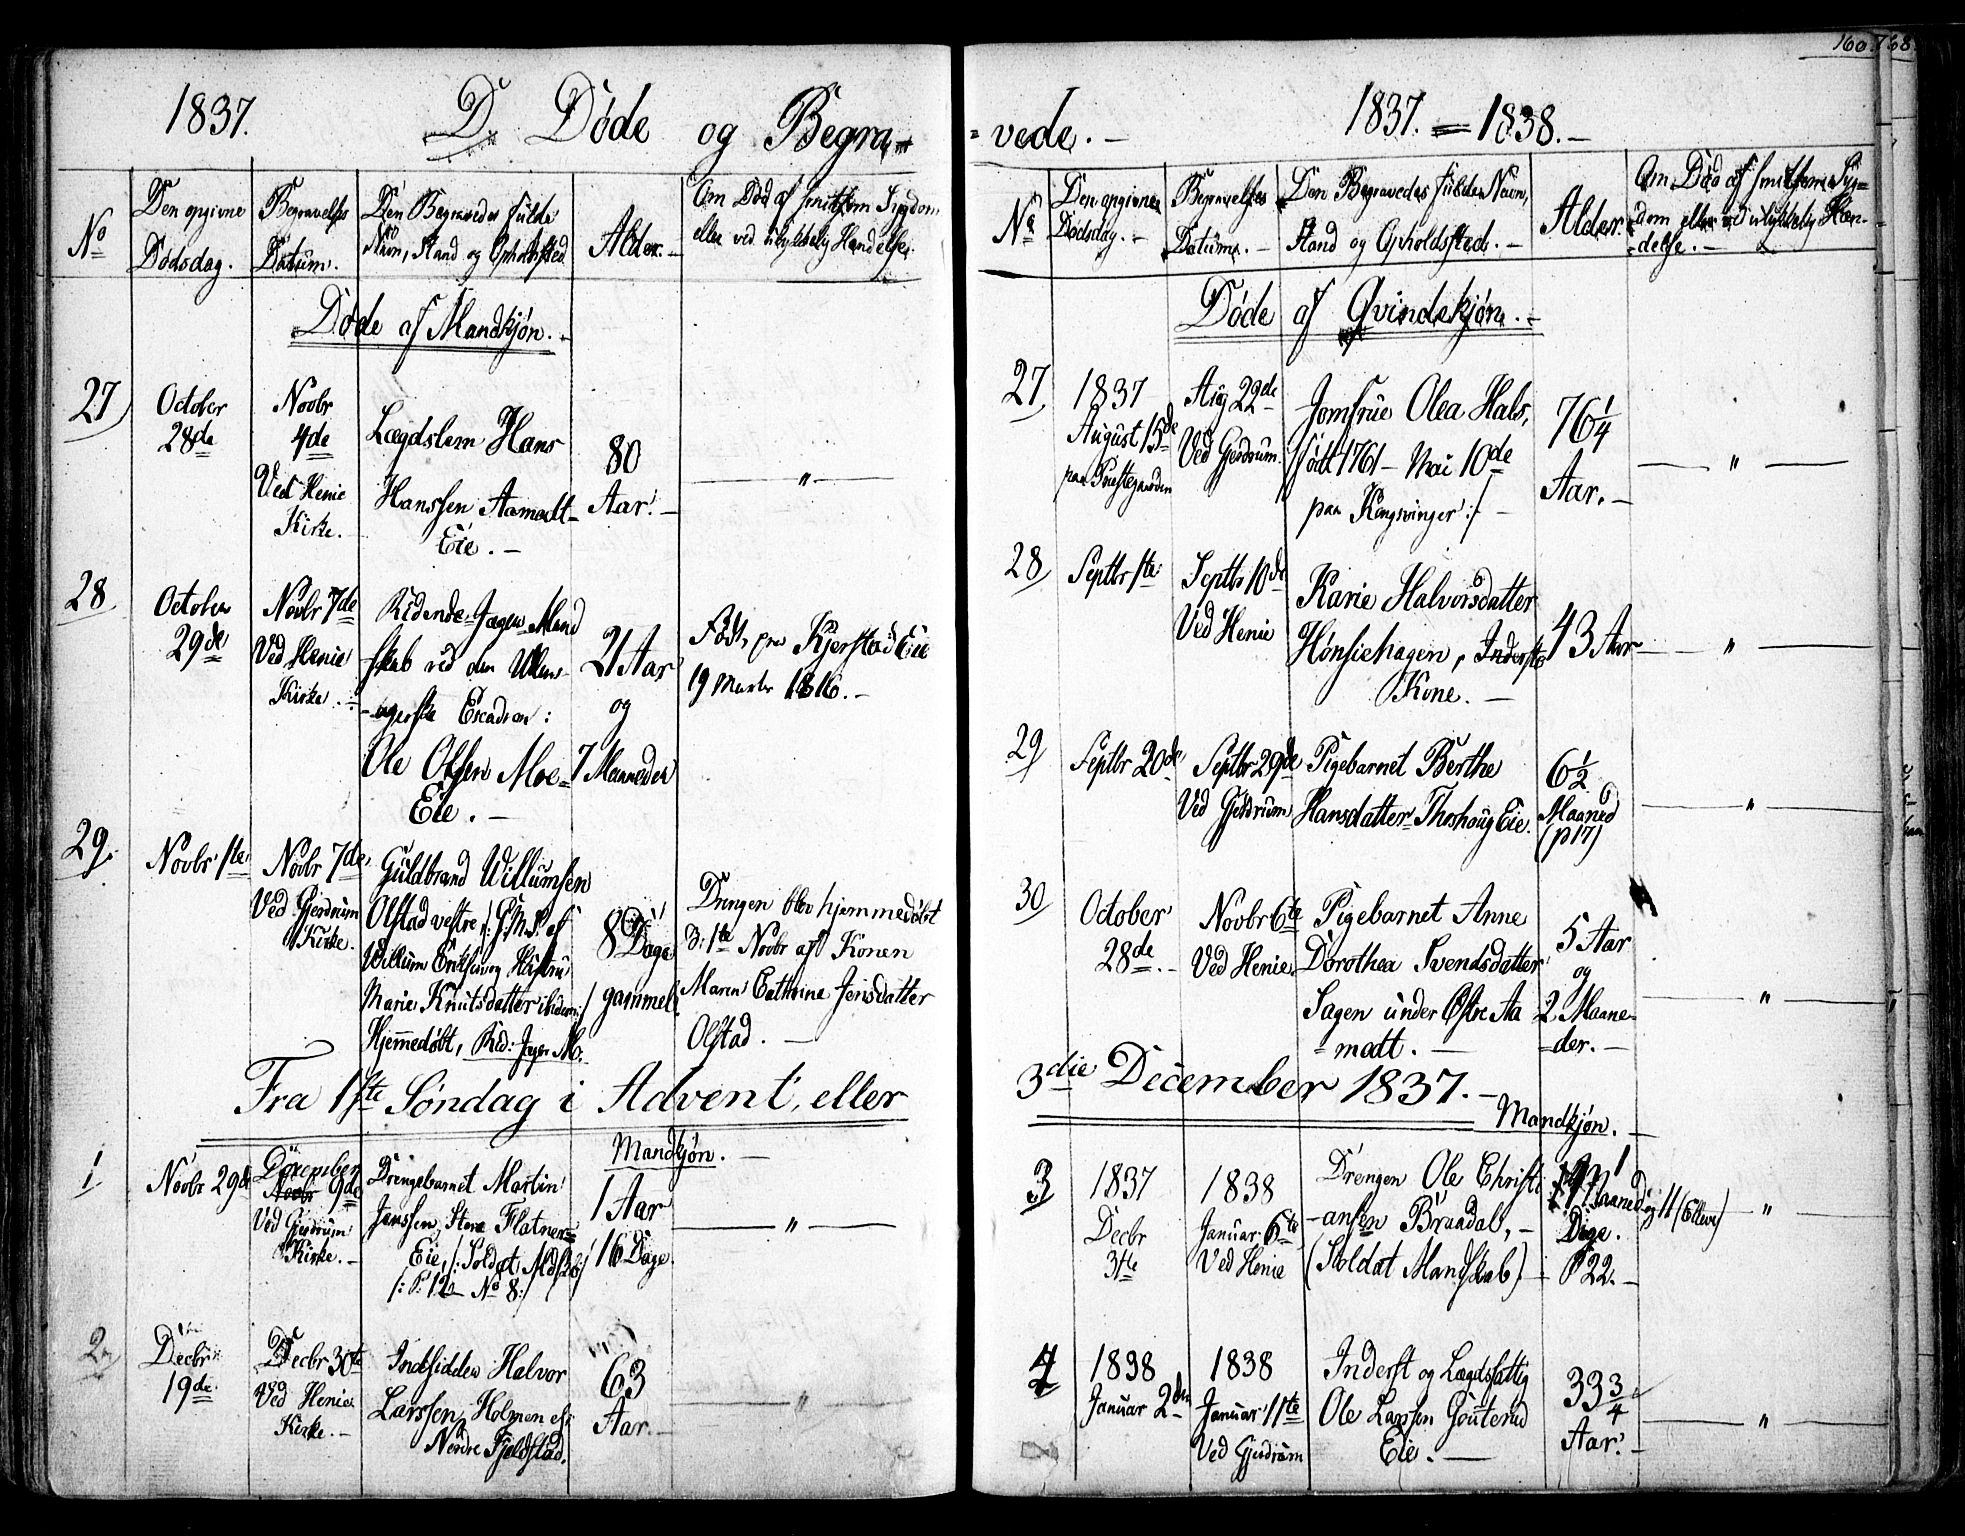 1837. D. Døde og Begra-
No
Den opgivne
Dødsdag.
Begravelses
Datum.
Den Begravedes fulde
Navn, Stand og Opholdsted
Alder.
Om Død af smitsom Sygdom
eller ved ulykkelig Hændelse.
Døde af Mandkjøn.
27
October
28de
Novbr
4de
Ved Henie
Kirke.
Lægdslem Hans
Hanssen Aamodt-
Eie.
80
Aar.
"
28
October
29de
Novbr 7de
Ved Henie
Kirke.
Ridende-Jæger Mand
skab ved den Ullens-
-agerske Escadron:
Ole Olsen Moe-
Eie.
21 Aar
og
7 Maaneder
Født paa Kjerstad Eie
19 Marts 1816.
29.
Novbr 1ste
Novbr 7de
Ved Gjerdrum
Kirke.
Guldbrand Willumsen
Olstad vestre /: G.M.S. af
Willum Eriksen og Hustru
Marie Knutsdatter ibidem :/
Hjemmedøbt, Rid: Jæger M.
8 Dage
gammel.
Drengen blev hjemmedøbt
3: 1ste Novbr af Konen
Maren Cathrine Jensdatter
Olstad.
Fra 1ste Søndag i Advent, eller
Mandkjøn.
1
Novbr 29de
December
Novbr 9de
Ved Gjerdrum
Kirke.
Drengebarnet Martin
Janssen, Store Flatner=
Eie, /: Soldat Mdsk: /
/: P: 12 No 8:/
1 Aar
16 Dage.
"
2
Decbr
19de
Decbr 30te
Ved Henie
Kirke.
Indsidder Halvor
Larssen Holmen af
Nordre Fjeldstad.
63
Aar.
"
160. 768
= vede. 1837. = 1838.
No
Den opgivne
Dødsdag.
Begravelses
Datum.
Den Begravedes fulde Navn,
Stand og Opholdsted.
Alder.
Om Død af smitsom Syg=
dom eller ved ulykkelig Hæn-
delse.
Døde af Qvindekjøn.
27
1837
August 15de
paa Præstegaarden
Aug 22de
Ved Gjerdrum
Jomfrue Olea Hals,
født 1761 - Mai 10de
paa Kongsvinger :/
76 1/4
Aar.
"
28
Septbr 1ste
Septbr 10de
Ved Henie
Karie Halvorsdatter
Hønsiehagen, Inderste
Kone.
43 Aar
"
29
Septbr 20de
Septbr 29de
Ved Gjerdrum
Pigebarnet Berthe
Hansdatter Thoshoug Eie.
6 1/2
Maaned
(p 17)
"
30
October
28de.
Novbr 6te
Ved Henie
Pigebarnet Anne
Dorothea Svendsdatter
Sagen under Østre Aa
= modt.
5 Aar
og
2 Maane-
=der.
"
3die December 1837.
Mandkjøn.
3
1837
Decbr
31te
1838
Januar 6te
Ved Henie
Drengen Ole Christi
-ansen Braadal,
(Soldat Mandskab)
1 Maaned og 11 (Elleve)
Dage.
P 22.
"
4
1838
Januar 2den
1838
Januar 11te
Ved Gjerdrum
Inderst og Lægdsfattig
Ole Larssen Gouterud
Eie.
33 3/4
Aar.
"